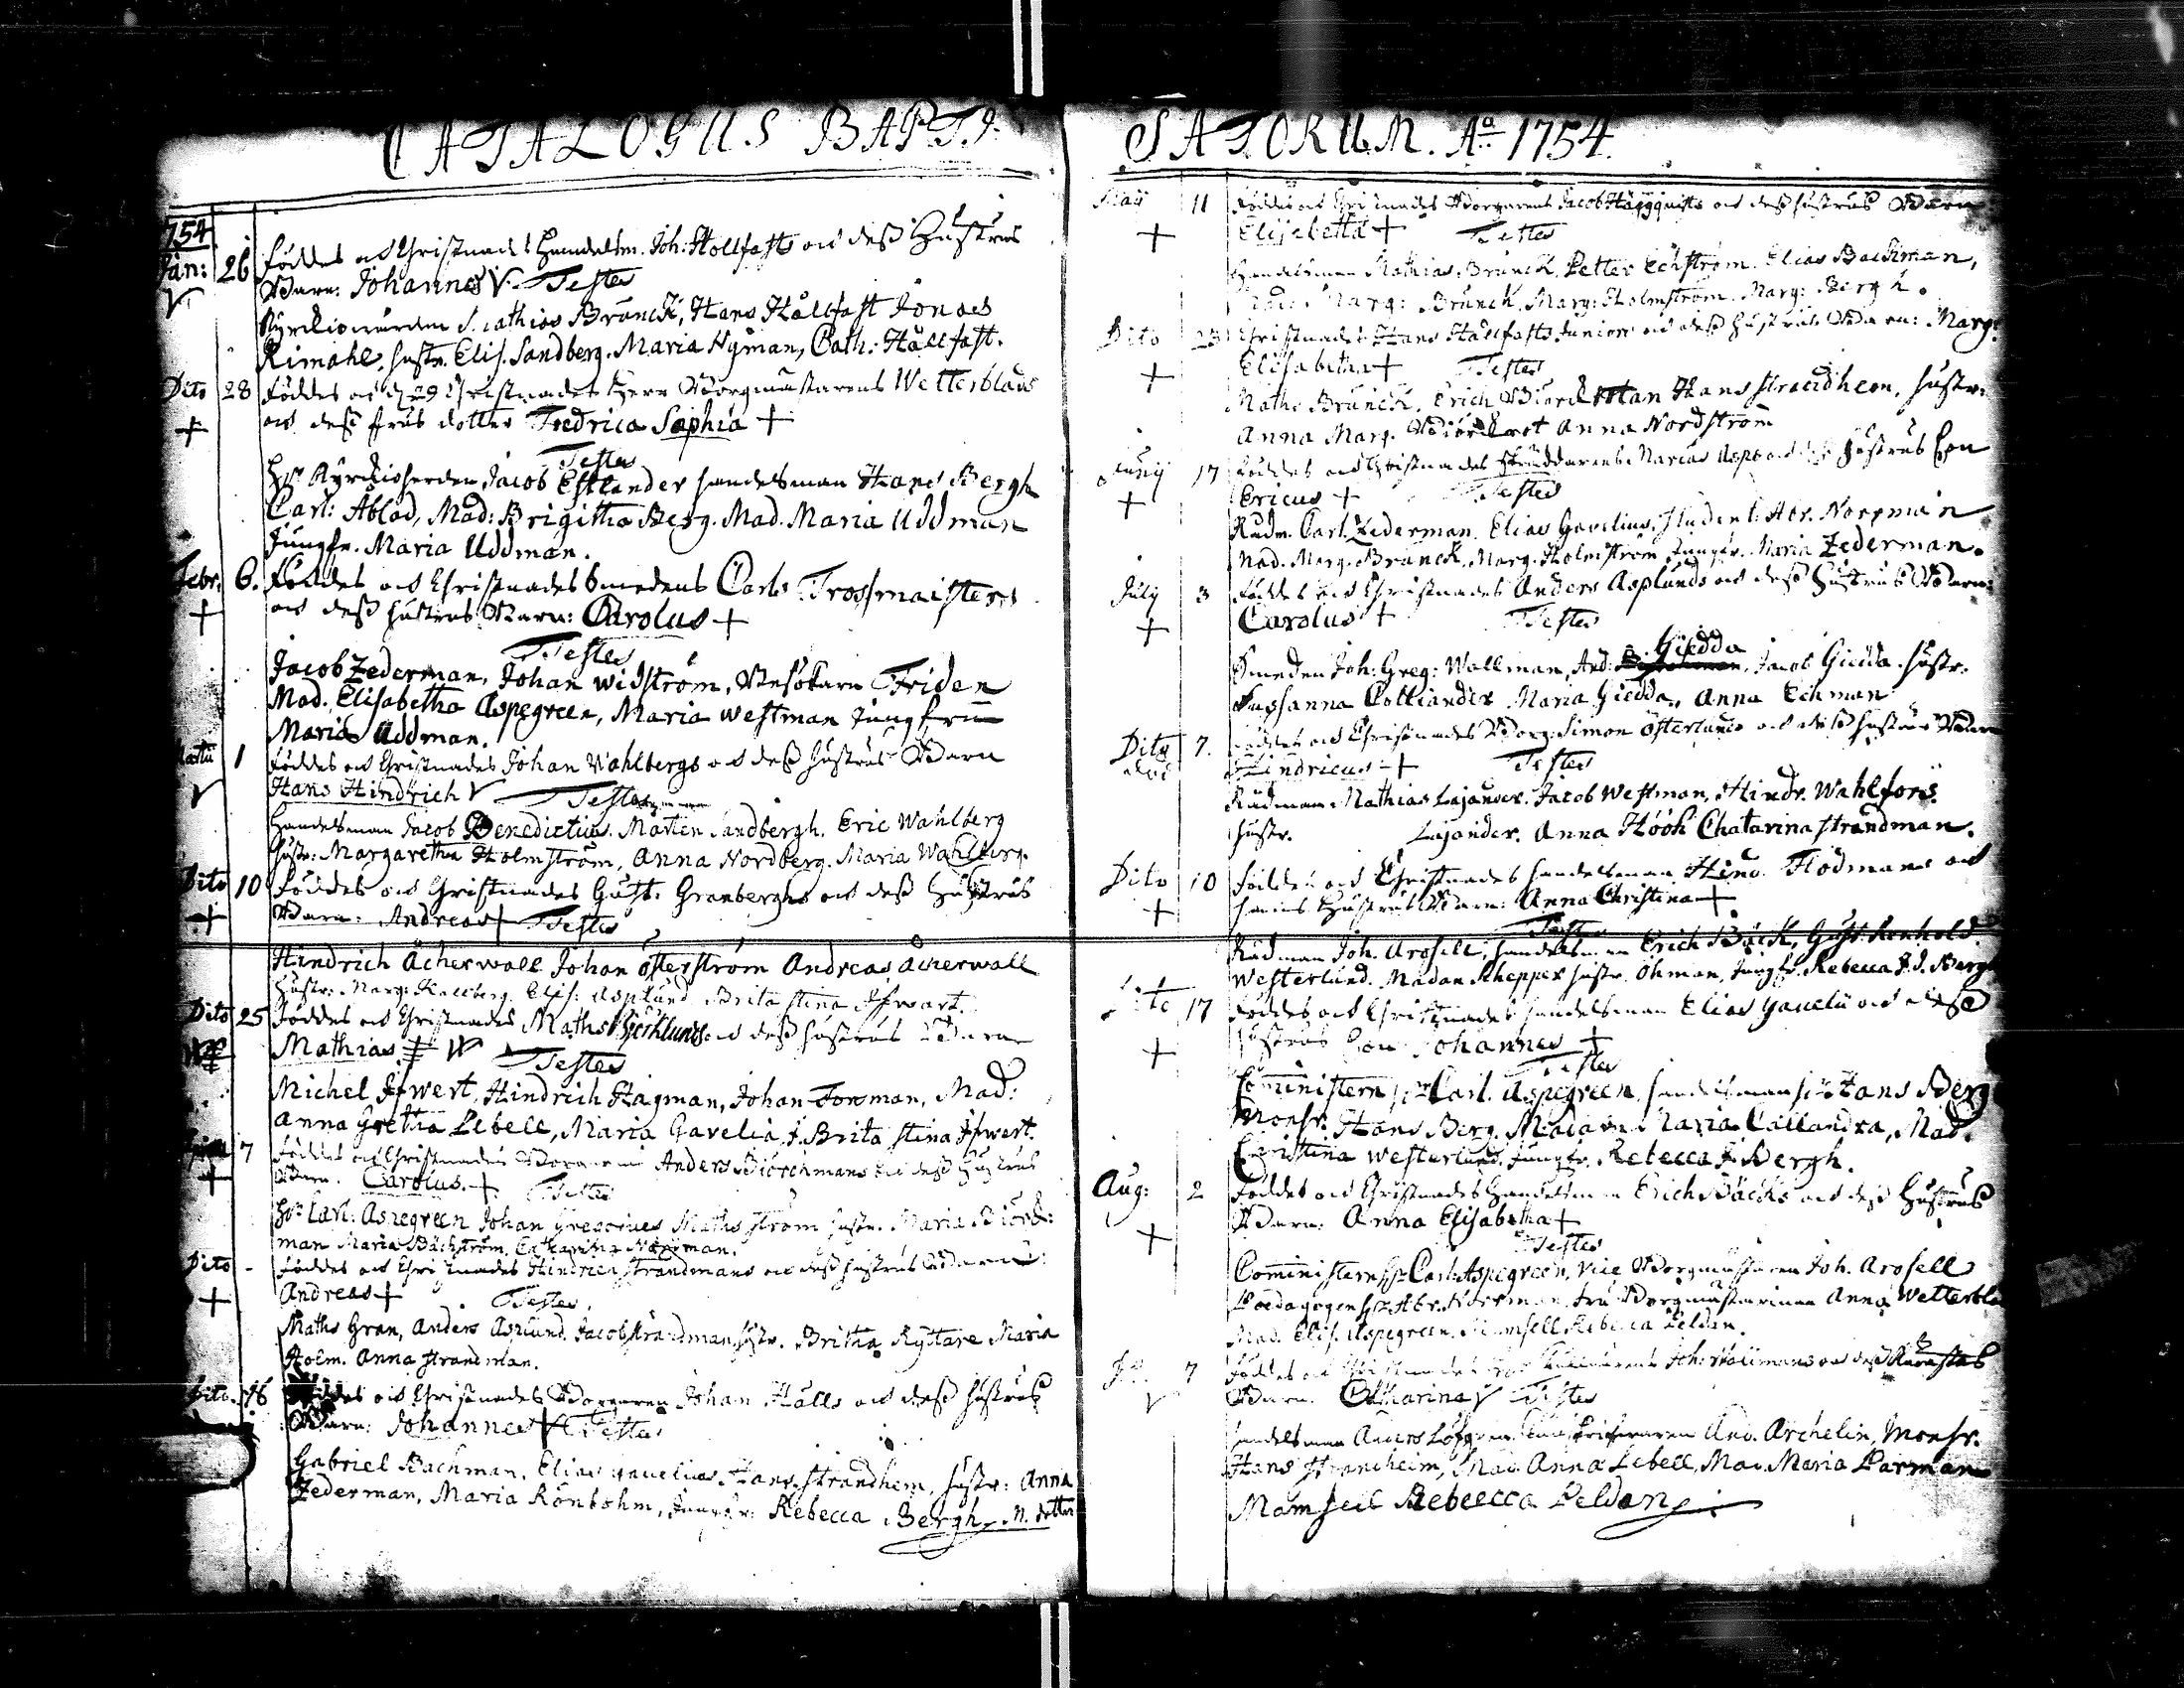 CATALOGUS BAPTI-
1754
Jan: 26 föddes och Christnades Handelsm. Joh: Hollfasts och dess Hustrus
Barn: Johannes V. Testes
Kyrckiowärden Mathias Brunck, Hans Hållfast Jonas
Kimahl, hustr. Elis. Sandberg. Maria Nyman, Cath: Hållfast.
Dito 28 föddes och d. 29 Christnades Herr Borgmästarens Wetterblads
+ och dess frus dotter Fredrica Sophia +
Testes
Hr Kyrckioherden Jacob Estlander handelsman Hans Bergh
Carl: Ablad, Mad: Brigitha Berg. Mad. Maria Uddman
Jungfr. Maria Uddman.
Febr. 6. Föddes och Christnades Smedens Carls Trossmaisters
+ och dess hustrus Barn: Carolus +
Testes
Jacob Zederman, Johan Widström, Friden
Mad. Elisabetha Aspegreen, Maria Westman Jungfru
Maria Uddman.
Martii 1 föddes och Christnades Johan Wahlbergs och dess hustrus Barn
V Hans Hindrich V Testes
Handelsman Jacob Benedictius. Mårten Sandbergh. Eric Wahlberg
hustr: Margaretha Holmström, Anna Nordberg. Maria Wahlberg.
Dito 10 föddes och Christnades Gust. Granberghs och dess Hustrus
+ Barn: Andreas + Testes
Hindrich Åcherwall Johan Österström Andreas Åcherwall
Hustr: Marg: Kallberg. Elis: Asplund Brita Stina Ifwart.
Dito 25 föddes och Christnades Maths Biörklunds och dess hustrus Barn
Mathias Testes
Michel Ifwert, Hindrich Hagman, Johan Forsman, Mad:
Anna Gretha Lebell, Maria Gavelia, J. Brita Stina Ifwert.
7 föddes och Christnades Borgaren Anders Biörchmans och dess Hustrus
+ Barn. Carolus. + Testes
Hr Carl: Aspegreen Johan Gregorius Maths Ström hustr. Maria Biörck-
man Maria Bäckström. Catharina Norrman.
Dito - föddes och Christnades Hindrich Strandmans och dess hustrus Barn:
+ Andreas + Testes.
Maths Gran, Anders Asplund. Jacob Strandman, hustr. Britha Ryttare Maria
Holm. Anna Strandman.
Dito. 16 föddes och Christnades Borgaren Johan Hälls och dess hustrus
Barn: Johannes + Testes
Gabriel Bachman. Elias Gavelius. Hans Strandhem, hustr: Anna
Zederman, Maria Rönbohm, Jungfr: Rebecca Bergh, N. dotter
SATORUM. Ao 1754.
Maij 11 föddes och Christnades Borgarens Jacob Häggquists och dess hustrus Barn
+ Elisabetha + Testes
Handelsman Mathias Brunck. Petter Echström. Elias Bachman,
Mad: Marg: Brunck. Marg: Holmström. Marg: Bergh.
Dito 23 Christnades Hans Hållfasts Junior och dess hustrus Barn: Marg:
+ Elisabetha + Testes
Maths Brunck, Erich Hans Strandhem, hustru
Anna Marg. Anna Nordström
Junij 17 föddes och Christnades Skräddarens Marcus Asps och dess Hustrus Son
+ Ericus + Testes
Rådm. Carl. Zederman. Elias Gavelius. Student: Abr. Norrman
Mad. Marg. Brunck, Marg. Holmström, Jungfr. Maria Zederman.
July 3 föddes och Christnades Anders Asplunds och dess Hustrus Barn:
+ Carolus + Testes
Giedda
Smeden Joh: Greg: Wallman, And: Jacob Giedda. hustr.
Sussanna Colliander Maria Giedda, Anna Echman
Dito 7. föddes och Christnades Borg: Simon Österlunds och dess hustrus Barn
död Hindricus + Testes
Rådman Mathias Lajander. Jacob Westman, Hindr. Wahlfors.
hustr. Lajander. Anna Höök Chatarina Strandman.
Dito 10 föddes och Christnades handelsman Hind. Flodmans och
+ hans Hustrus Barn: Anna Christina +
Testes
Rådman Joh. Arosell, handelsman Erich Bäck, Gust. Renhold
Westerlund. Madam Schepper hustr. Öhman, Jungfr. Rebecca J. J. Bergh
Dito 17 föddes och Christnades handelsman Elias Gavelii och dess
+ Hustrus Son Johannes +
Testes
Comministern Hr Carl. Aspegreen, handelsman Hr Hans Berg
Monsr. Hans Berg. Madam Maria Callandra, Mad.
Christina Westerlund, Jungfr. Rebecca J. Bergh.
Aug: 2 föddes och Christnades Handelsman Erich Bäcks och dess Hustrus
+ Barn: Anna Elisabetha +
Testes
Comministern Hr Carl: Aspegreen, Vice Borgmästaren Joh. Arosell
Pædagogen Hr Abr. Norrman, fru Borgmästarinnan Anna Wetterbla
Mad. Elis. Aspegreen. Mamsell Rebecca Peldan.
7 föddes och Christnades Joh: Wallmans och dess
V Barn. Catharina V Testes
Handelsman Anders Löfgren. And. Archelin, Monsr.
Hans Strandheim, Mad. Anna Lebell, Mad. Maria Parman
Mamsell Rebecca Peldan